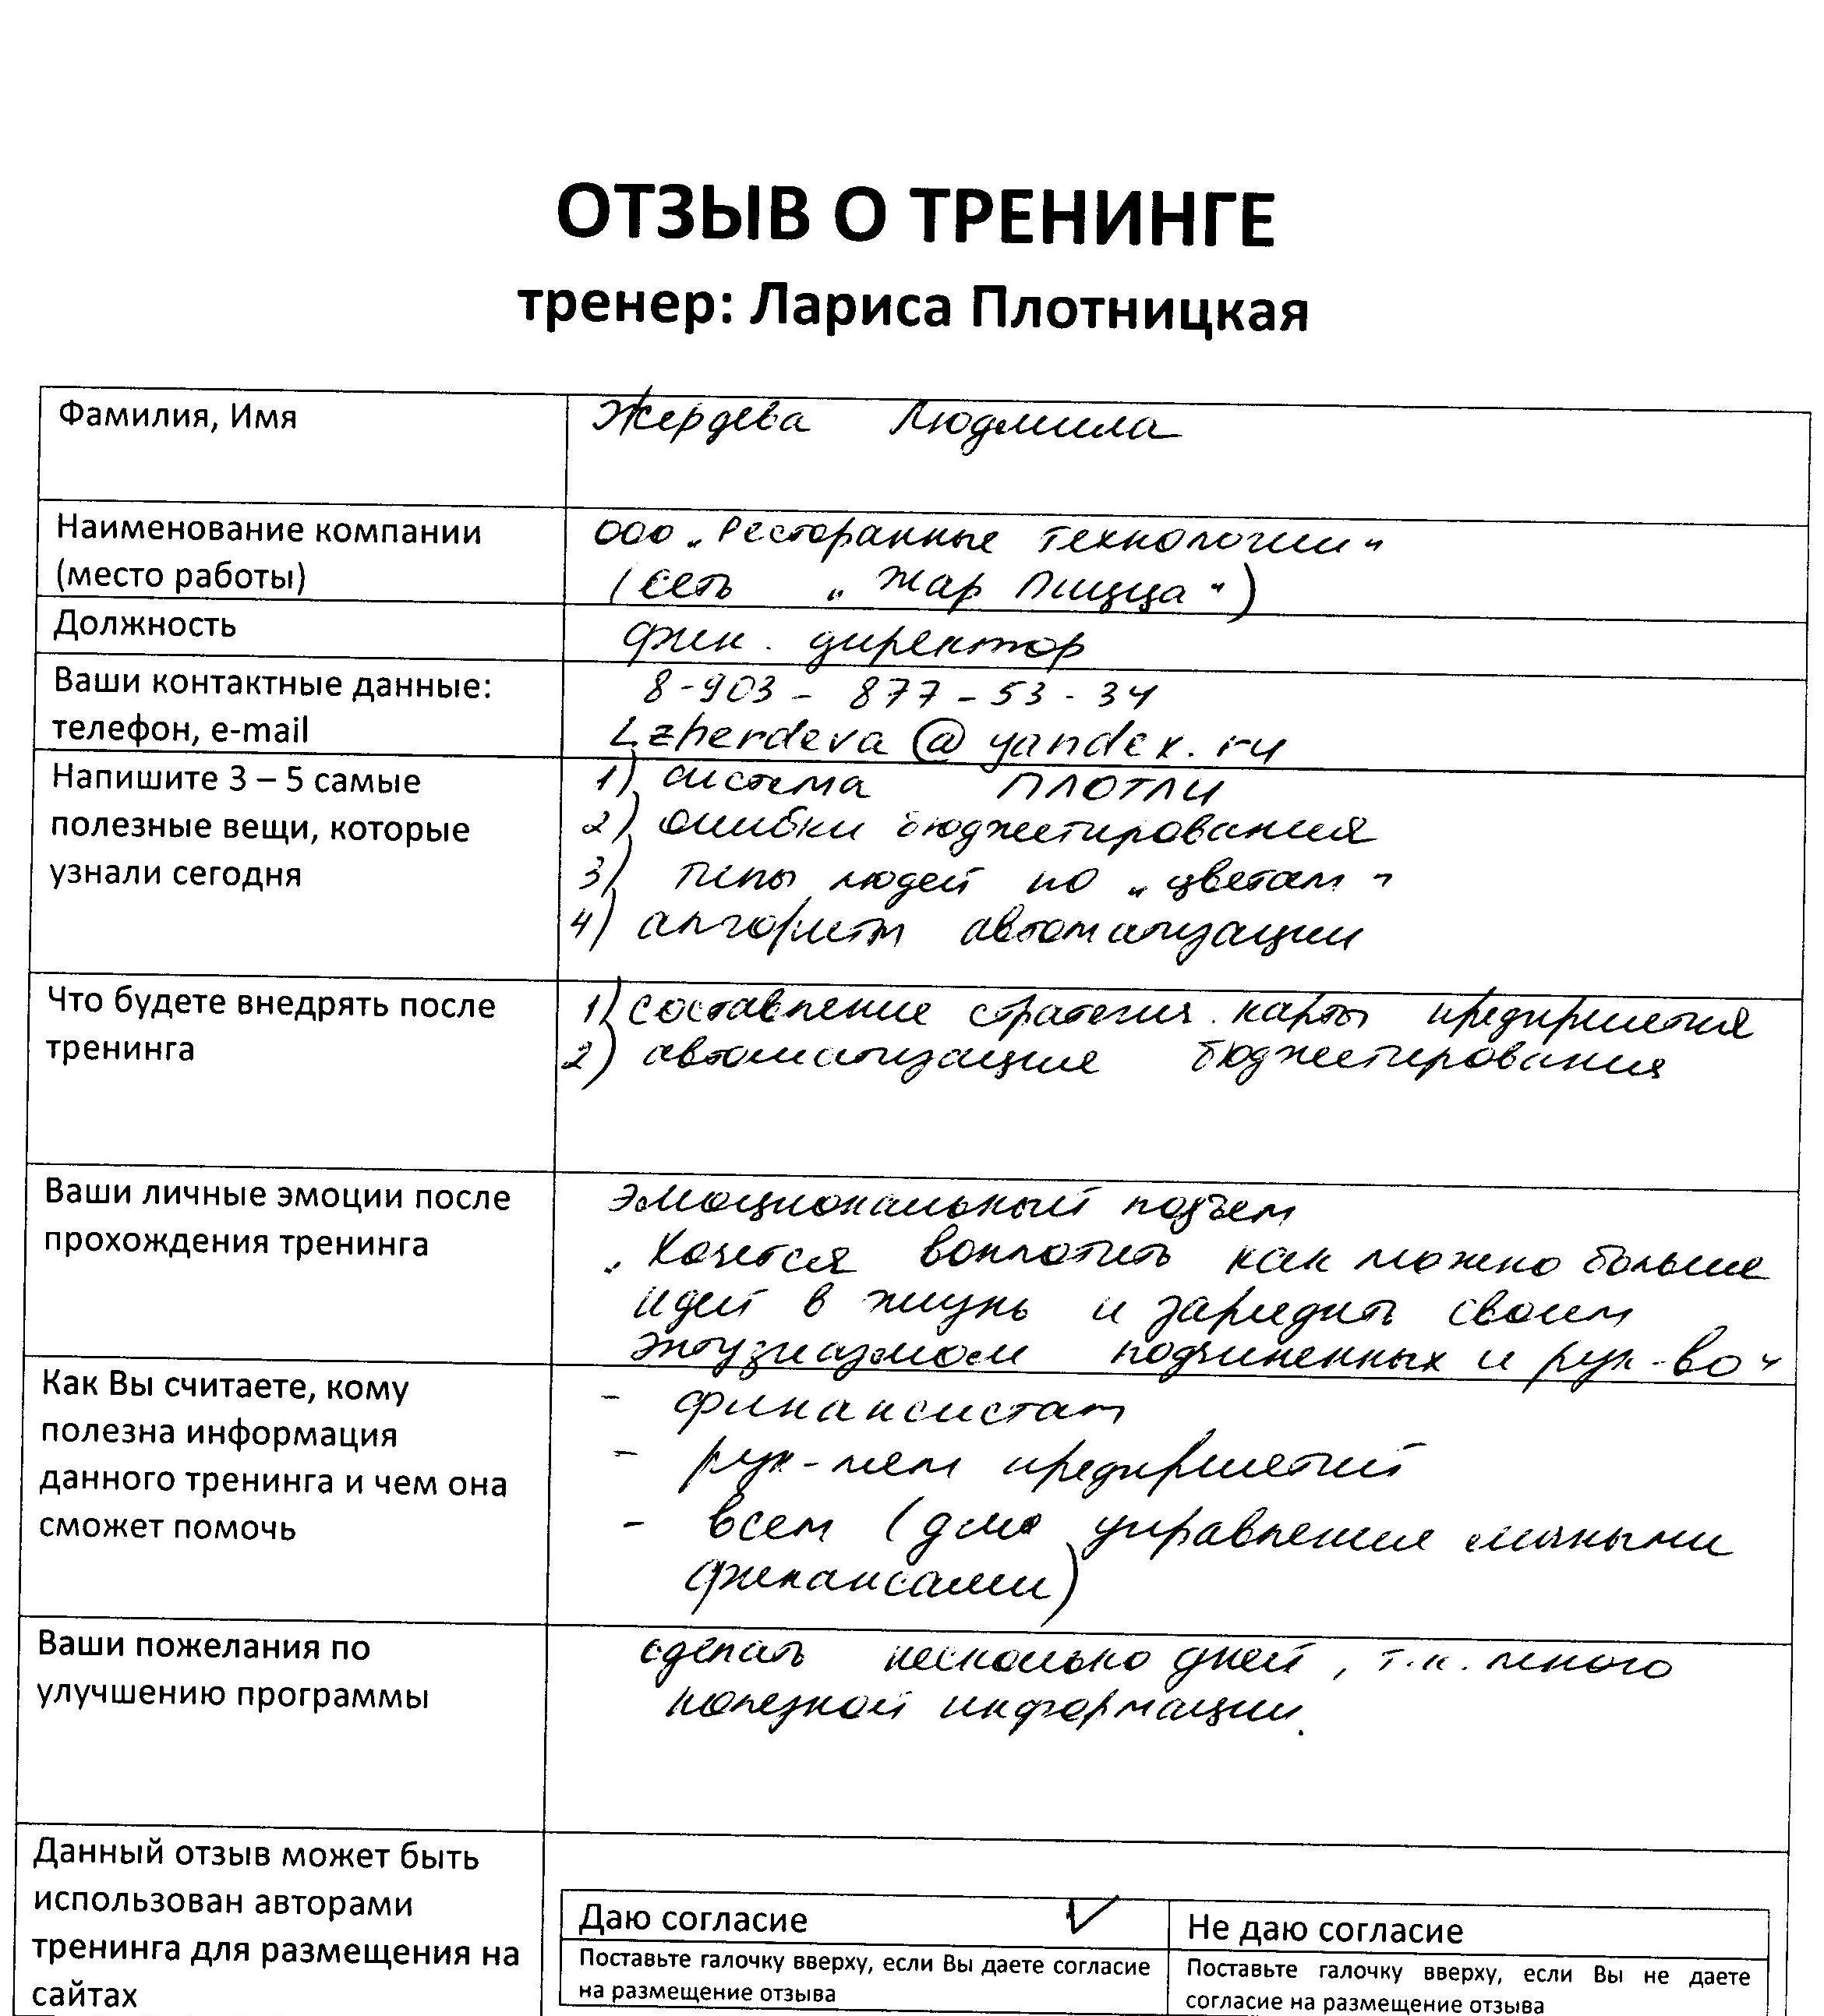 ОТЗЫВ О ТРЕНИНГЕ
тренер: Лариса Плотницкая
Фамилия, Имя
Жердева Людмила
Наименование компании
(место работы)
ООО "Ресторанные технологии"
(сеть "Жар Пицца")
Должность
фин. директор
Ваши контактные данные:
телефон, e-mail
8-903-877-53-34
Lzherdeva@yandex.ru
Напишите 3 – 5 самые
полезные вещи, которые
узнали сегодня
1) система ПЛОТЛИ
2) ошибки бюджетирования
3) типы людей по "цветам"
4) алгоритм автоматизации
Что будете внедрять после
тренинга
1) составление стратегич. карты предприятия
2) автоматизация бюджетирования
Ваши личные эмоции после
прохождения тренинга
эмоциональный подъем
"Хочется воплотить как можно больше
идей в жизнь и зарядить своим
энтузиазмом подчиненных и рук-во"
Как Вы считаете, кому
полезна информация
данного тренинга и чем она
сможет помочь
- финансистам
- рук-лем предприятий
- всем (для управления личными
финансами)
Ваши пожелания по
улучшению программы
сделать несколько дней, т.к. много
полезной информации.
Данный отзыв может быть
использован авторами
тренинга для размещения на
сайтах
Даю согласие ✓
Поставьте галочку вверху, если Вы даете согласие
на размещение отзыва
Не даю согласие
Поставьте галочку вверху, если Вы не даете
согласие на размещение отзыва